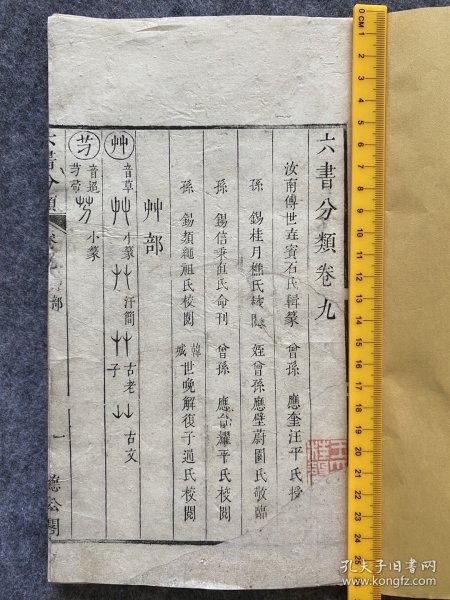 六書分類卷九
汝南傅世垚賓石氏輯篆 曾孫 應奎汪平氏授
孫 錫桂月樵氏校閱 姪曾孫應壁蔚園氏敬臨
孫 錫信秉直氏命刊 曾孫 應台耀平氏校閱
孫 錫類繩祖氏校閱 韓城世晚解復子適氏校閱
艸部
艸 音草 小篆 汗簡 古老子 古文
芀 音迢 芀帚 小篆
六書分類 卷九 部 一
0 CM 1 2 3 4 5 6 7 8 9 10 11 12 13 14 15 16 17 18 19 20 21 22 23 24 25
孔夫子旧书网
www.kongfz.com